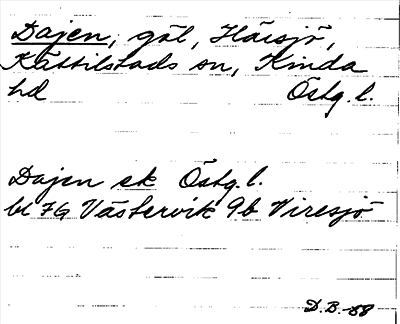 Dajen, göl, Häisjö,
Kättilstads sn, Kinda
hd Östg.l.
Dajen ek Östg.l.
bl 7G Västervik 9b Viresjö
D.B.-88